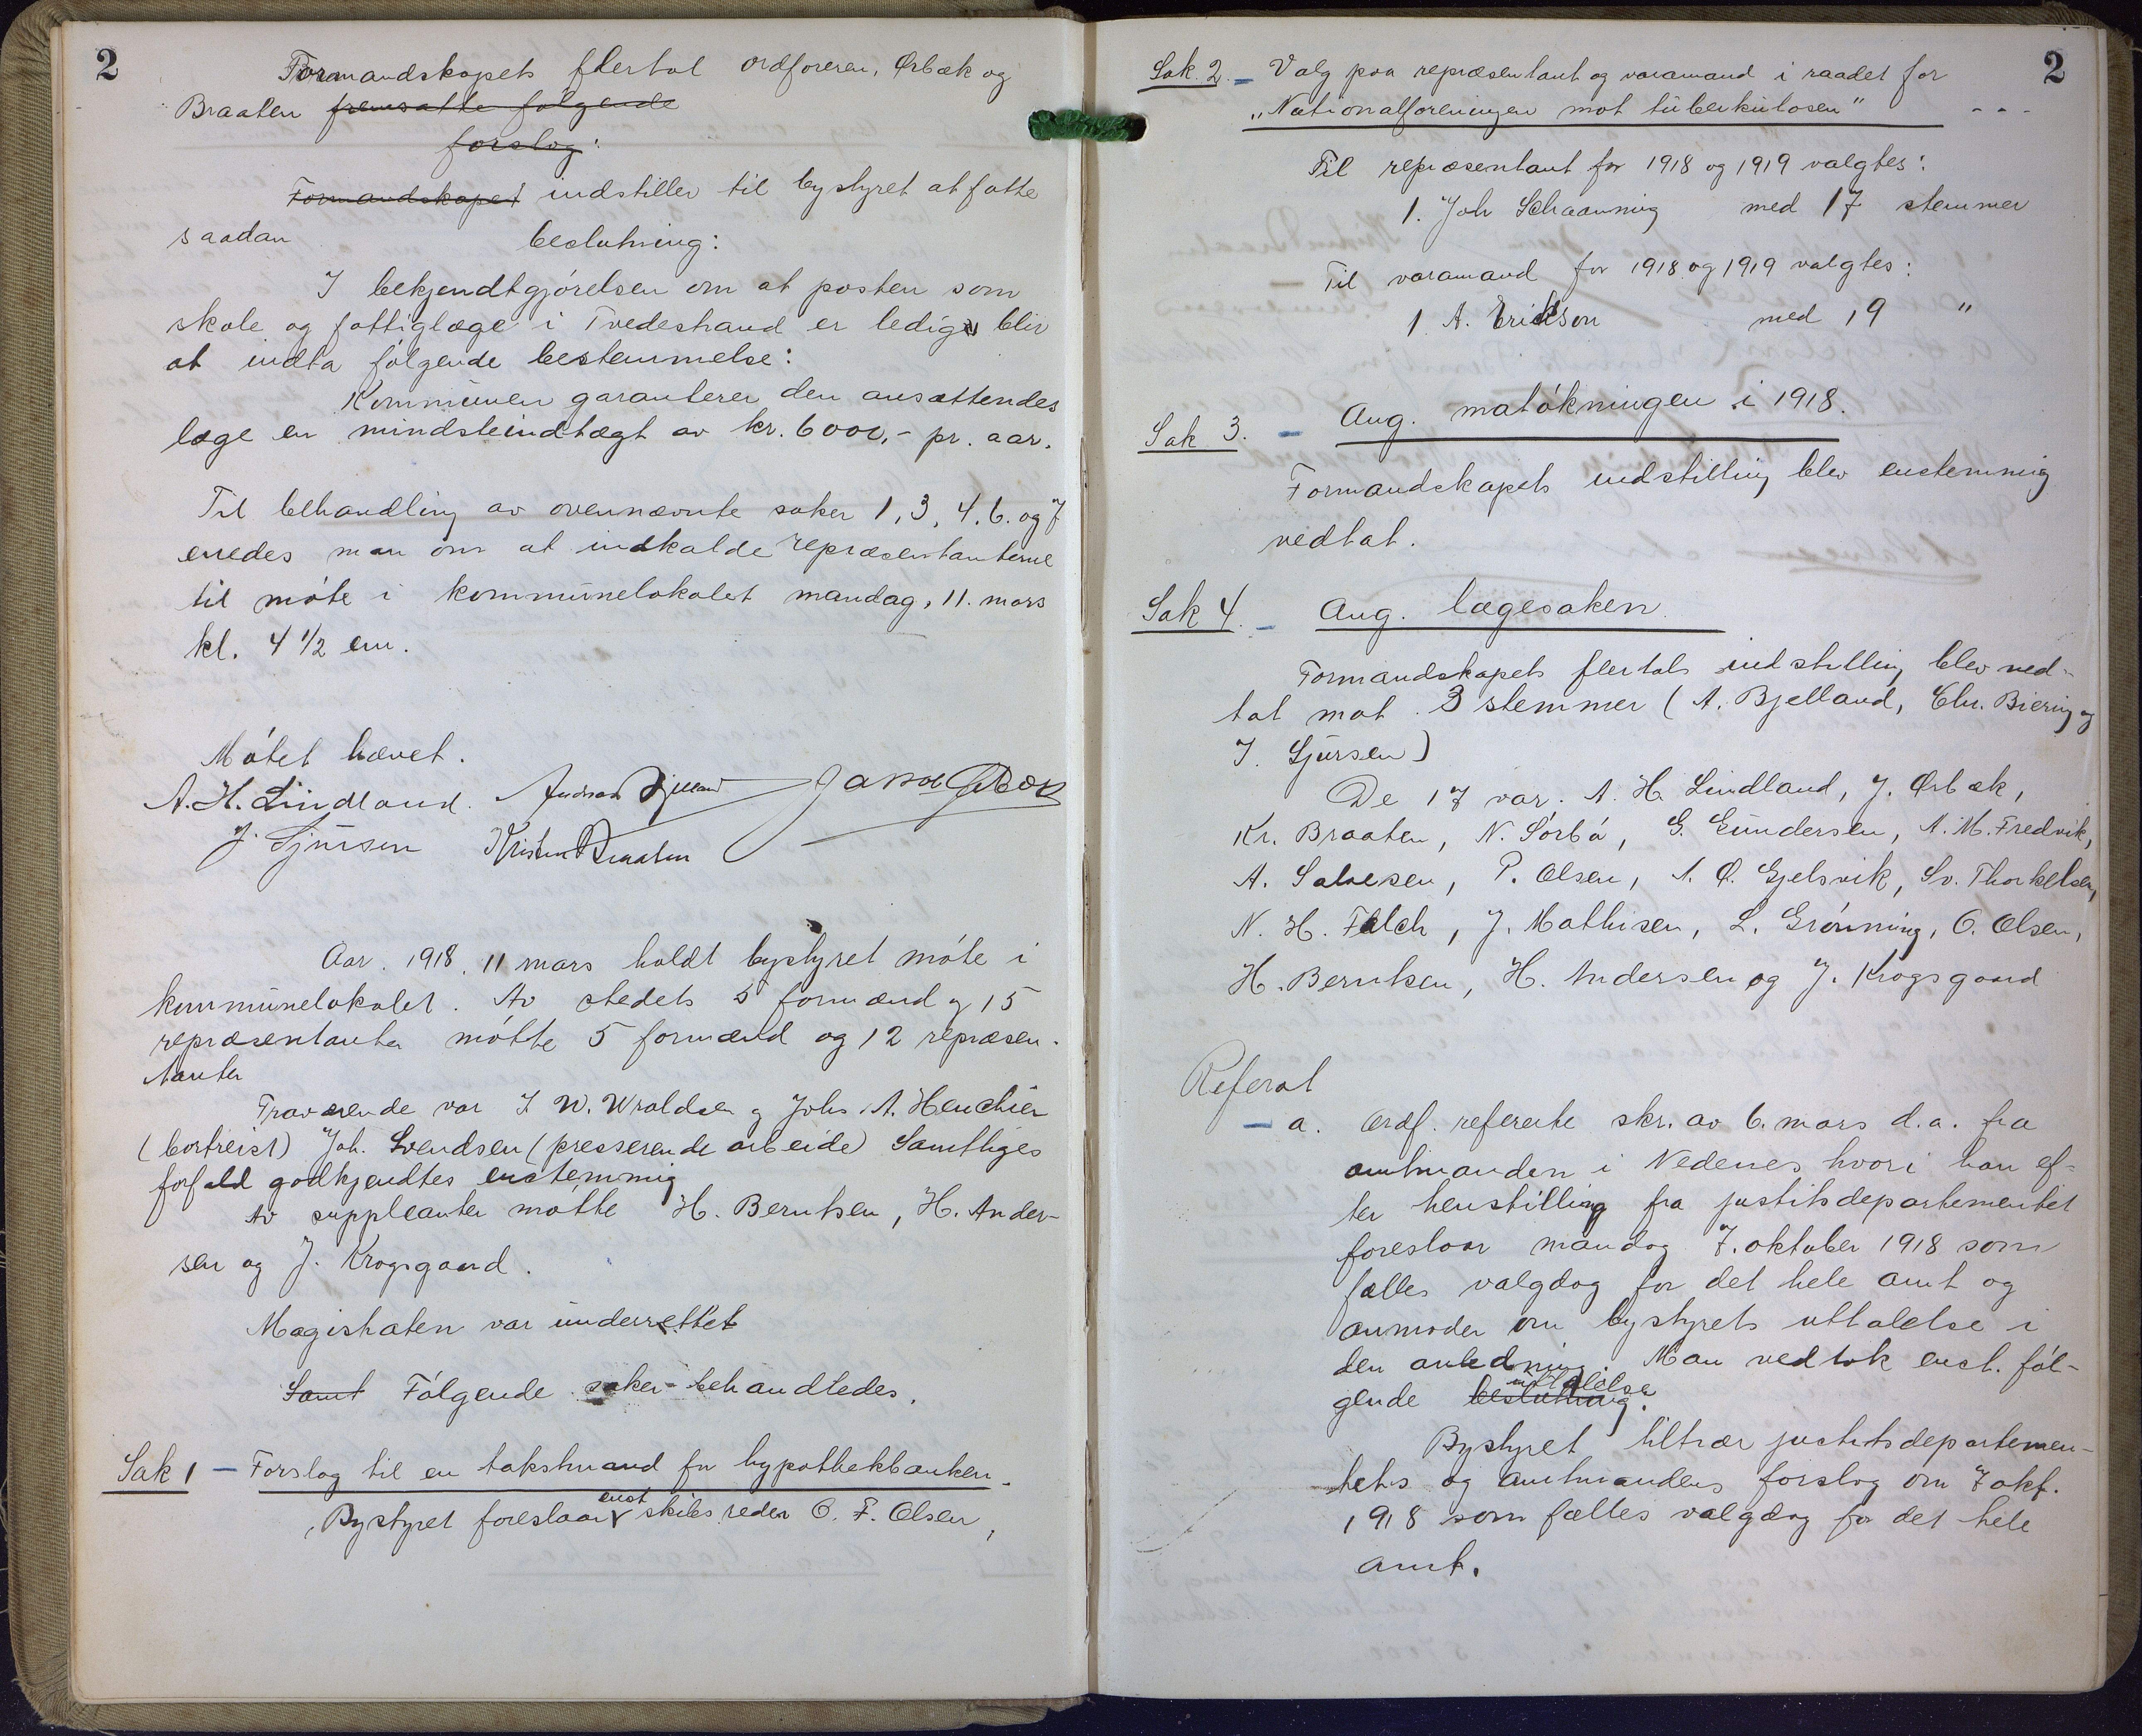 2
Formandskapets flertal ordføreren, Ørbæk og
Braaten fremsatte følgende
forslag:
Formandskapet indstiller til bystyret at fatte
saadan beslutning:
I bekjendtgjørelsen om at posten som
skole og fattiglæge i Tvedestrand er ledig blir
at indta følgende bestemmelse:
Kommunen garanterer den ansættendes
læge en mindsteindtægt av kr. 6000,- pr. aar.
Til behandling av ovennævnte saker 1, 3, 4, 6. og 7
enedes man om at indkalde repræsentanterne
til møte i kommunelokalet mandag, 11. mars
kl. 4 1/2 em.
Møtet hævet.
A. H. Lindland. Andreas Bjelland Jakob Ørbæk
J. Sjursen Kristen Braaten
Aar 1918, 11 mars holdt bystyret møte i
kommunelokalet. Av stedets 5 formænd og 15
repræsentanter møtte 5 formænd og 12 repræsen-
tanter
Fraværende var J. W. Wroldsen og Johs. A. Henchien
(bortreist) Joh. Svendsen (presserende arbeide) Samtliges
forfald godkjendtes enstemmig
Av suppleanter møtte H. Berntsen, H. Ander-
sen og J. Krogsgaard.
Magistraten var underrettet
Samt Følgende saker behandledes.
Sak 1 - Forslag til en takstmand for hypothekbanken.
Bystyret foreslaar enst skibsreder O. F. Olsen,
2
Sak. 2. - Valg paa repræsentant og varamand i raadet for
"Nationalforeningen mot tuberkulosen" - - -
Til repræsentant for 1918 og 1919 valgtes:
1. Joh Schaanning med 17 stemmer
Til varamand for 1918 og 1919 valgtes:
1. A. Erikson med 19 "
Sak 3. - Ang. matøkningen i 1918.
Formandskapets indstilling blev enstemmig
vedtat.
Sak 4. - Ang. lægesaken.
Formandskapets flertals indstilling blev ved-
tat mot 3 stemmer (A. Bjelland, Chr. Biering og
J. Sjursen)
De 17 var. A. H. Lindland, J. Ørbæk,
Kr. Braaten, N. Sørbø, G. Gundersen, A. M. Fredvik,
A. Salvesen, P. Olsen, A. O. Gjelsvik, Sv. Thorkelsen,
N. H. Falch, J. Mathisen, L. Grønning, O. Olsen,
H. Berntsen, H. Andersen og J. Krogsgaard
Referat
- a. Ordf. referete skr. av 6. mars d.a. fra
amtmanden i Nedenes hvori han ef-
ter henstilling fra justitsdepartementet
foreslaar mandag 7. oktober 1918 som
fælles valgdag for det hele amt og
anmoder om bystyrets uttalelse i
den anledning. Man vedtok enst. føl-
gende beslutning uttalelse:
Bystyret tiltrær justitsdepartemen-
tets og amtmandens forslag om 7 okt.
1918 som fælles valgdag for det hele
amt.